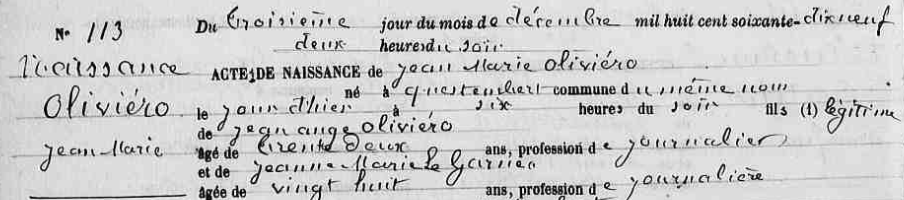 N° 113 Du troisième jour du mois de décembre mil huit cent soixante-dixneuf
deux heures du soir
Naissance ACTE DE NAISSANCE de jean Marie oliviéro
Oliviéro né à questembert commune du même nom
le jour d'hier à six heures du soir fils (1) légitime
de jean ange oliviéro
jean Marie âgé de trente deux ans, profession de journalier
et de jeanne Marie le Garnec
âgée de vingt huit ans, profession de journalière